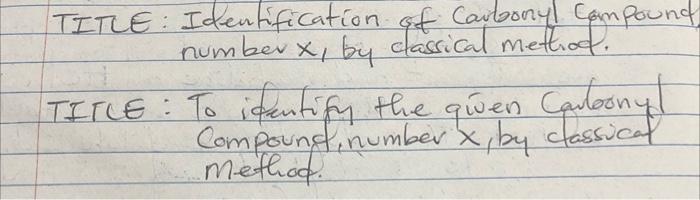 TITLE: Identification of Carbonyl Compound
number X, by classical method.
TITLE: To identify the given Carbonyl
Compound, number X, by classical
Method.